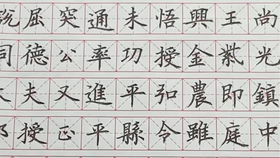 屈突通未悟興王尚
同德公率功授金紫光
大夫又進平弘農即鎮
授正平縣令雖庭中